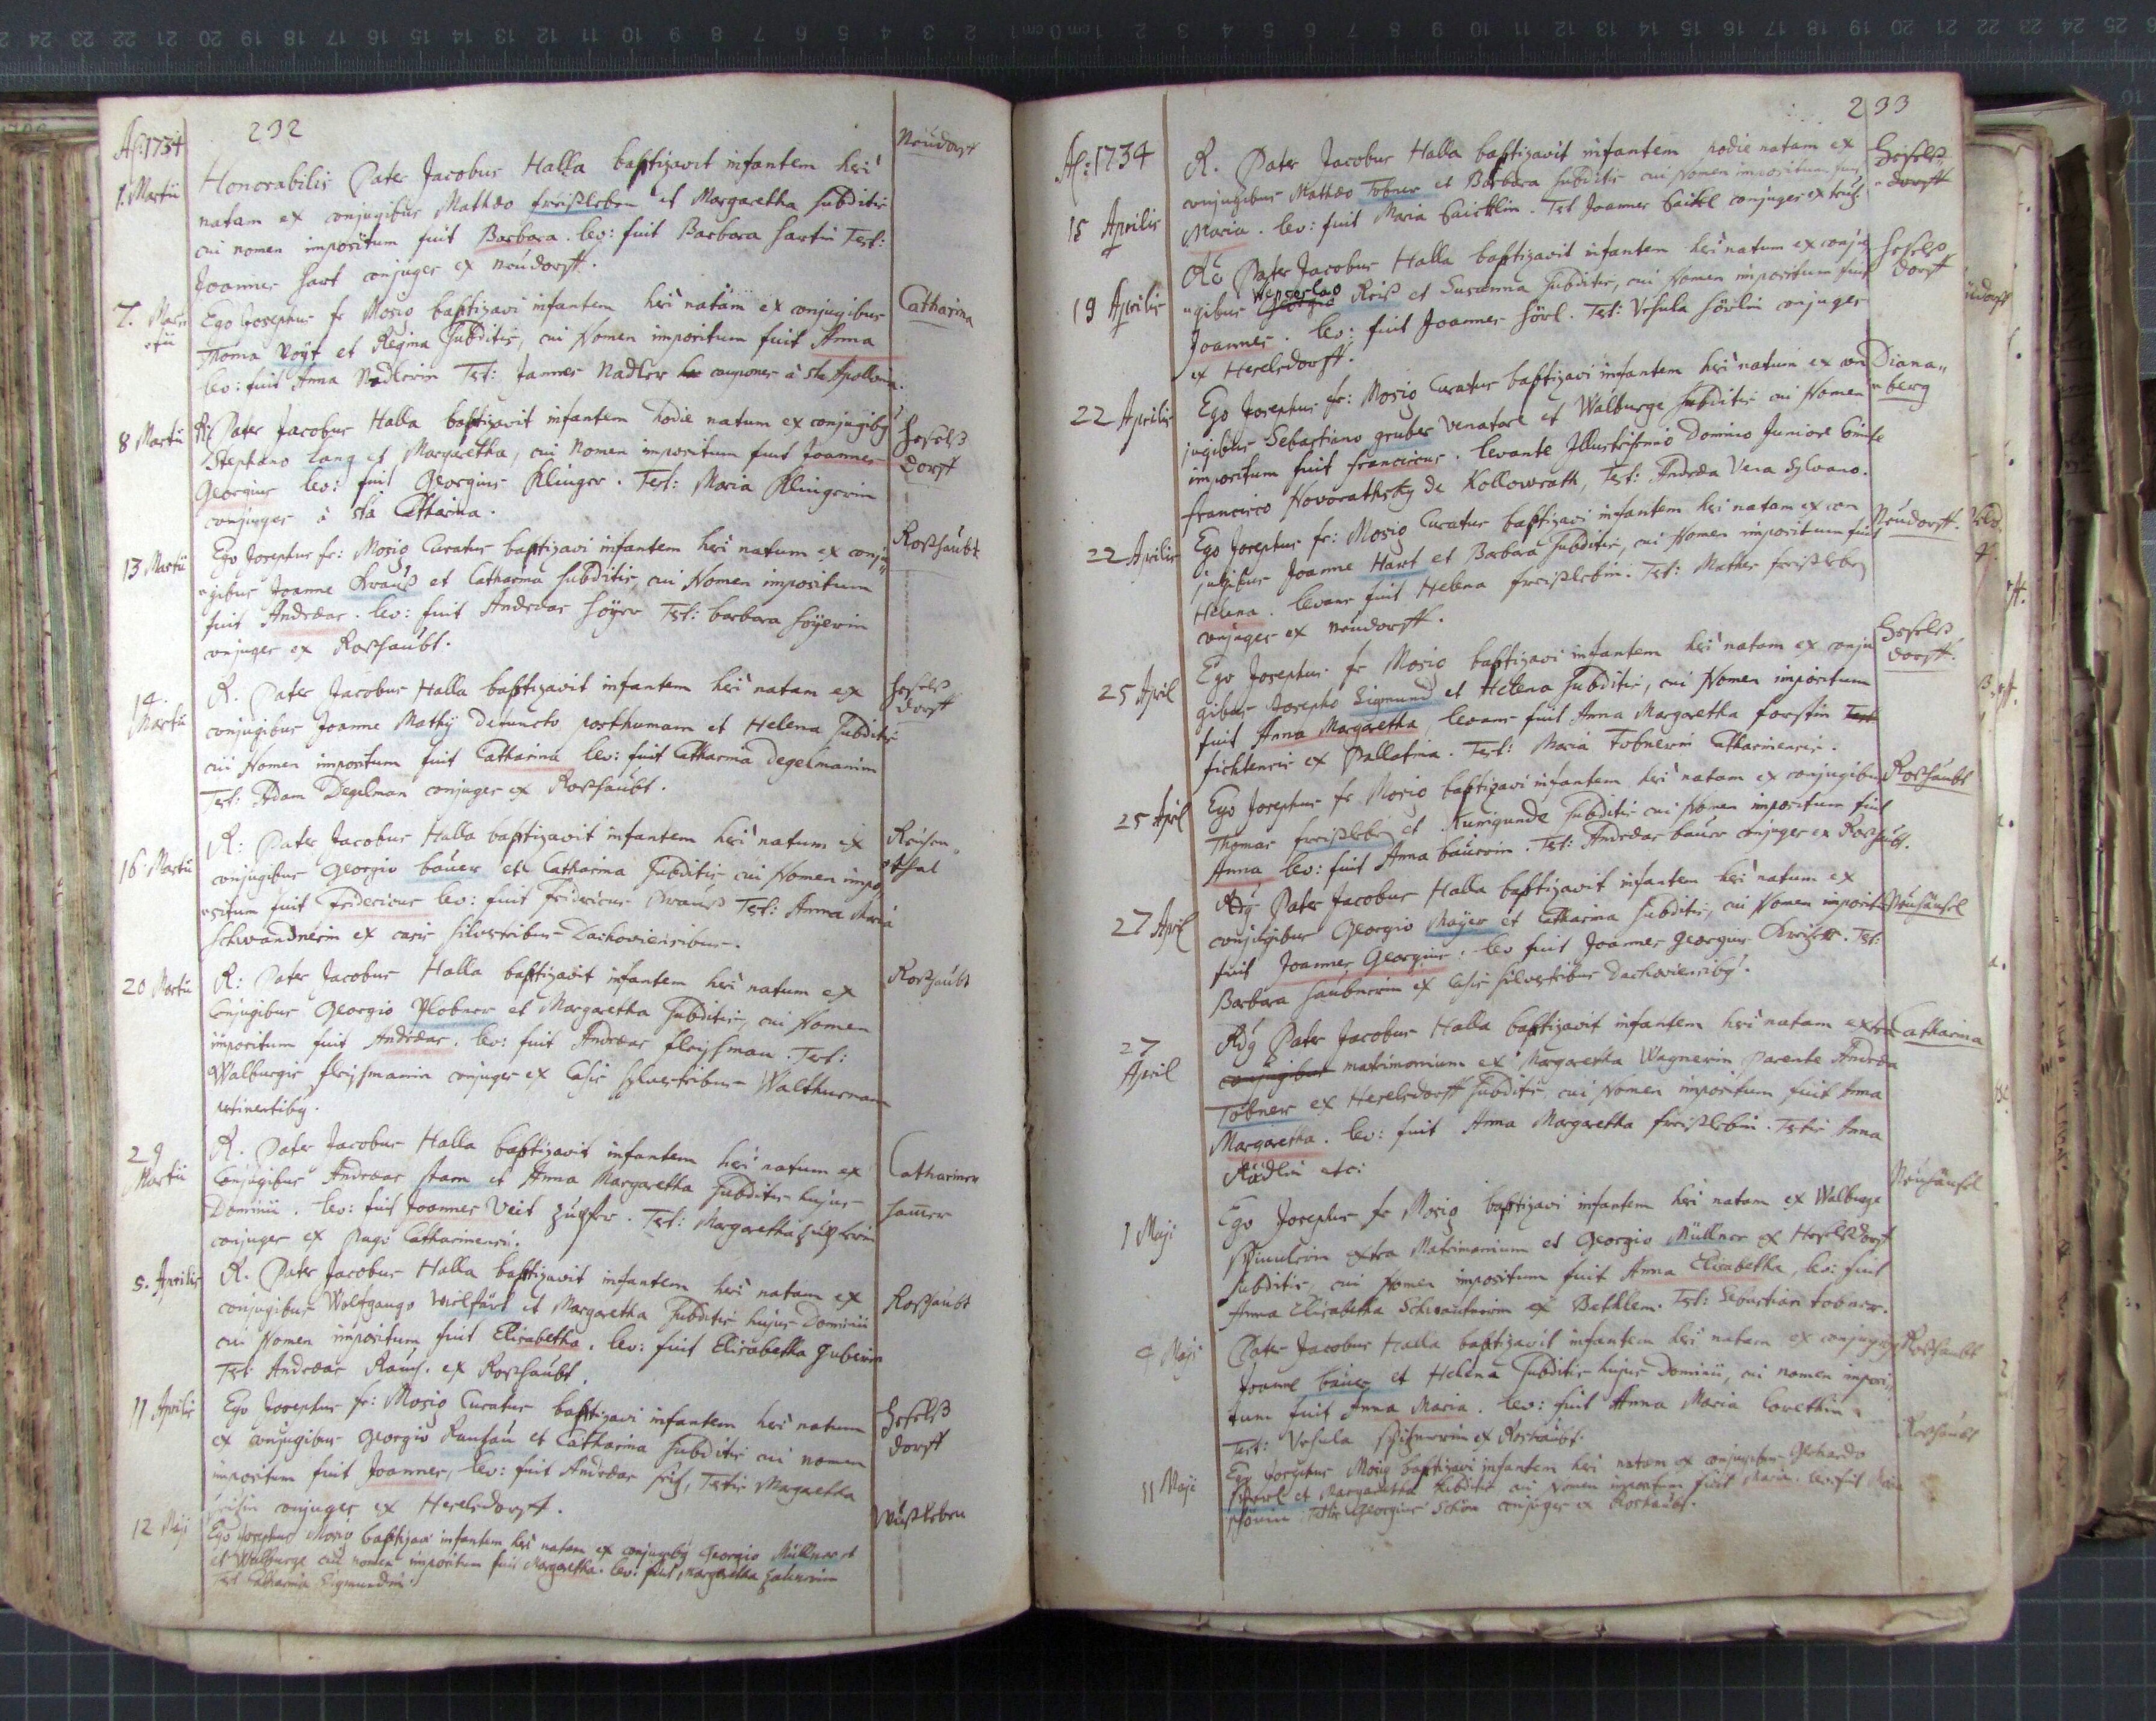 232
Aō: 1734
1. Martii
Honorabilis Pater Jacobus Halla baptizavit infantem heri
natam ex conjugibus Mathæo freißleben et Margaretha subditis
cui nomen impositum fuit Barbara. lev: fuit Barbara hartin Test:
Joannes hart conjuges ex neudorff.
Neudorff
7. Mar
tii
Ego Josephus fr Mosig baptizavi infantem heri natam ex conjugibus
Thoma Voyt et Regina Subditis, cui Nomen impositum fuit Anna
lev: fuit Anna Nadlerin Test: Joannes Nadler caupones à sta Apollonia.
Catharina
8 Martii
R. Pater Jacobus Halla baptizavit infantem hodie natum ex conjugibg
Stephano lang et Margaretha, cui Nomen impositum fuit Joannes
Georgius lev: fuit Georgius Klinger. Test: Maria Klingerin
conjuges à stá Catharina.
Heselß
dorff
13 Martii
Ego Josephus fr: Mosig Curatus baptizavi infantem heri natum ex conju
gibus Joanne Krauß et Catharina subditis, cui Nomen impositum
fuit Andreas. lev: fuit Andreas Hoyer Test: barbara Hoyerin
conjuges ex Roßhaubt.
Roßhaubt
14.
Martii
R. Pater Jacobus Halla baptizavit infantem heri natam ex
conjugibus Joanne Mathij defuncto posthumam et Helena Subditis
cui Nomen impositum fuit Catharina lev: fuit Catharina Degelmanin
Test: Adam Degelman conjuges ex Roßhaubt.
Heselß
dorff
16. Martii
R: Pater Jacobus Halla baptizavit infantem heri natum ex
conjugibus Georgio bäuer et Catharina Subditis cui Nomen impo
situm fuit Fridericus lev: fuit Fridericus Krauß Test: Anna Maria
Schwandnerin ex casis silvestribus Dachoviensibus.
Reisen
thal
20 Martii
R: Pater Jacobus Halla baptizavit infantem heri natum ex
Conjugibus Georgio Plobner et Margaretha Subditis, cui Nomen
impositum fuit Andreas. lev: fuit Andreas fleischman. Test:
Walburgis fleischmanin conjuges ex Casis sylvestribus Walthurnam
pertinentibg.
Roßhaubt
29
Martii
R. Pater Jacobus Halla baptizavit infantem heri natum ex
Conjugibus Andreas stam et Anna Margaretha Subditis hujus
Dominii. lev: fuit Joannes Veit Test: Margaretha
conjuges ex Pago Catharinensi.
Catharinen
ham̄er
5. Aprilis
R. Pater Jacobus Halla baptizavit infantem heri natam ex
conjugibus Wolfgango et Margaretha Subditis hujus Dominii
cui Nomen impositum fuit Elisabetha. lev: fuit Elisabetha Huberin
Test Andreas ex Roßhaubt.
Roßhaubt
11 Aprilis
Ego Josephus fr: Mosig Curatus baptizavi infantem heri natum
ex conjugibus Georgio et Catharina subditis cui nomen
impositum fuit Joannes, lev: fuit Andreas Testis Margaretha
conjuges ex Heselsdorff.
Heselß
dorff
12 Maji
Ego Josephus Mosig baptizavi infantem heri natam ex conjugibg Georgio Müllner et
et Walburge cui nomen impositum fuit Margaretha. lev: fuit, Margaretha
Test Catharina Sigmundin.
Wusleben
233
Aō: 1734
15 Aprilis
R. Pater Jacobus Halla baptizavit infantem hodie natam ex
conjugibus Mathæo Tobner et Barbara subditis cui Nomen impositum fuit
Maria. lev: fuit Maria Test Joannes conjuges ex
Heselß
dorff
19 Aprilis
Pater Jacobus Halla baptizavit infantem heri natum ex conju
gibus Wenceslao Reiß et Susanna Subditis, cui Nomen impositum fuit
Joannes. lev: fuit Joannes Hörl. Test: Ursula Hörlin conjuges
ex Heselsdorff.
Heselß
dorff
22 Aprilis
Ego Josephus fr: Mosig Curatus baptizavi infantem heri natum ex con
jugibus Sebastiano gruber Venatore et Walburge subditis cui Nomen
impositum fuit franciscus. levante Illustrissimo Domino Juniore Comite
francisco Novorathsky de Kollowrath, Test: Andræa Vera Sylvano.
Diana
berg
22 Aprilis
Ego Josephus fr: Mosig Curatus baptizavi infantem heri natam ex con
jugibus Joanne Hart et Barbara Subditis, cui Nomen impositum fuit
Helena. levans fuit Helena freißlebin. Test: Mathes freißleben
conjuges ex neudorff.
Neudorff.
25 April
Ego Josephus fr Mosig baptizavi infantem heri natam ex conju
gibus Josepho Sigmund et Helena Subditis, cui Nomen impositum
fuit Anna Margaretha levans fuit Anna Margaretha forstin
ex Pallatina. Test: Maria Tobnerin Catharinensis.
Heselß
dorff.
25 April
Ego Josephus fr Mosig baptizavi infantem heri natam ex conjugibus
Thomas freißleben et Kunigunde subditis cui Nomen impositum fuit
Anna lev: fuit Anna baürin. Test: Andreas bauer conjuges ex Roßhaubt.
Roßhaubt
27 April
Pater Jacobus Halla baptizavit infantem heri natum ex
conjugibus Georgio Mayer et Catharina Subditis, cui Nomen impositum
fuit Joannes Georgius. lev fuit Joannes georgius Test:
Barbara ex Casis silvestribus Dachoviensibg.
Neuhäusel
27
April
Pater Jacobus Halla baptizavit infantem heri natam extra
conjugibus matrimonium ex Margaretha Wagnerin parente Andræa
Tobner ex Heselsdorff Subditis, cui Nomen impositum fuit Anna
Margaretha. lev: fuit Anna Margaretha freißlebin. Testis Anna
etc:
Catharina
1 Maji
Ego Josephus fr Mosig baptizavi infantem heri natam ex Walburge
extra Matrimonium et Georgio Müllner ex Heselsdorff
Subditis, cui Nomen impositum fuit Anna Elisabetha, lev: fuit
Anna Elisabetha ex Bethlem. Test: Sebastian tobner.
Neuhäusel
Maji
Pater Jacobus Halla baptizavit infantem heri natam ex conjugibg
Joanne bäuer et Helena Subditis hujus Dominii, cui nomen imposi
tum fuit Anna Maria. lev: fuit Anna Maria
Test: Ursula ex Roshaubt.
Roßhaubt
11 Maji
Ego Josephus Mosig baptizavi infantem heri natam ex conjugibus Gerhardo
et Margaretha subditis cui Nomen impositum fuit Maria. lev: fuit Maria
Testis Georgius Schön conjuges ex Roshaubt.
Roßhaubt